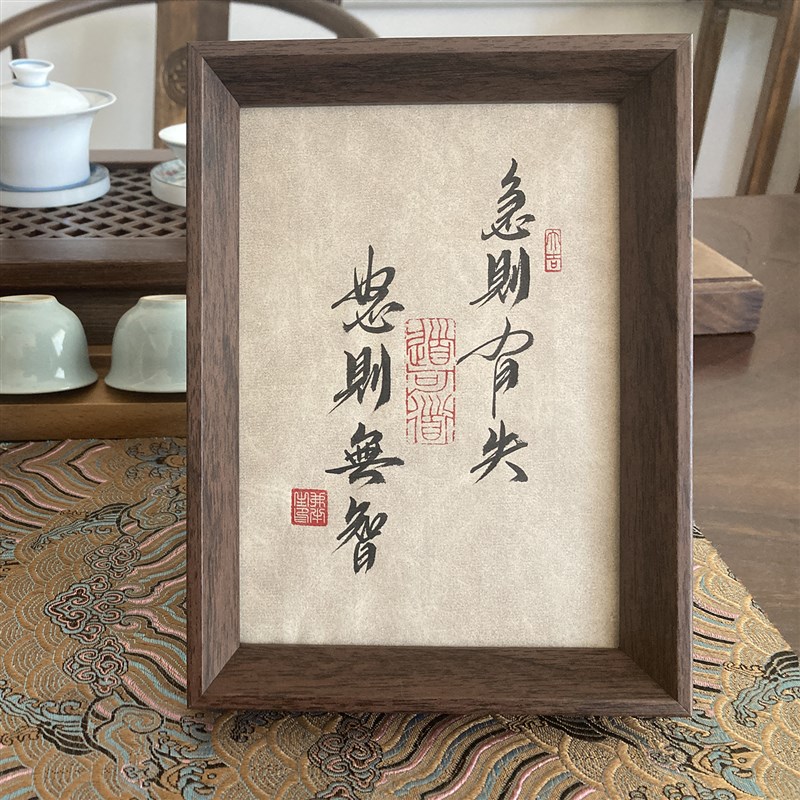 急則有失
怒則無智
大吉